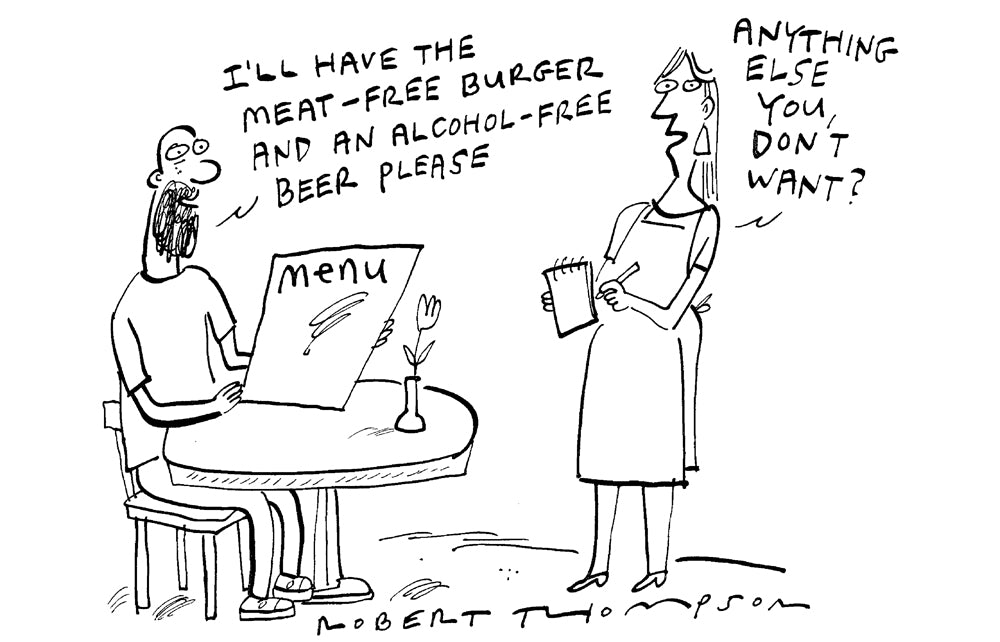 I'LL HAVE THE
MEAT-FREE BURGER
AND AN ALCOHOL-FREE
BEER PLEASE
ANYTHING
ELSE
YOU,
DON'T
WANT?
menu
ROBERT THOMPSON